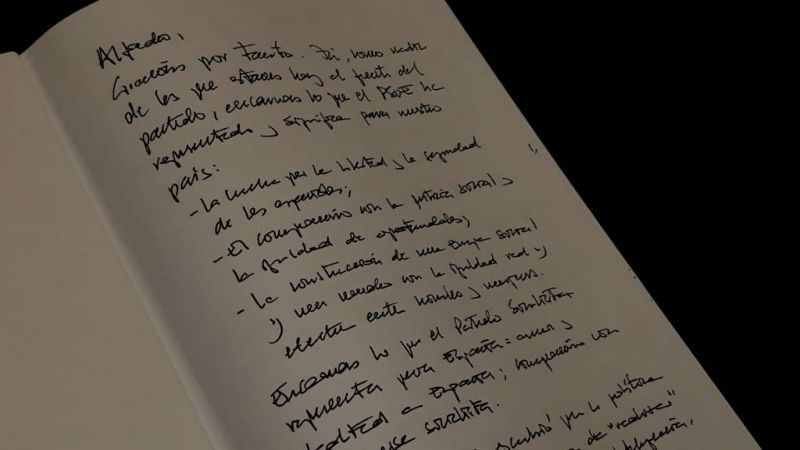 Alfredo,
Gracias por tanto. Tú, como nadie
de los que estamos hoy al frente del
partido, encarnas lo que el PSOE ha
representado y significa para nuestro
país:
- La lucha por la libertad y la seguridad
de los españoles;
- El compromiso con la justicia social y
la igualdad de oportunidades;
- La construcción de una Europa social
y una sociedad con la igualdad real y
efectiva entre hombres y mujeres.
Encarnas lo que el Partido Socialista
representa para España: amor y
lealtad a España; compromiso con
socialista.
que la política
de "realidad"